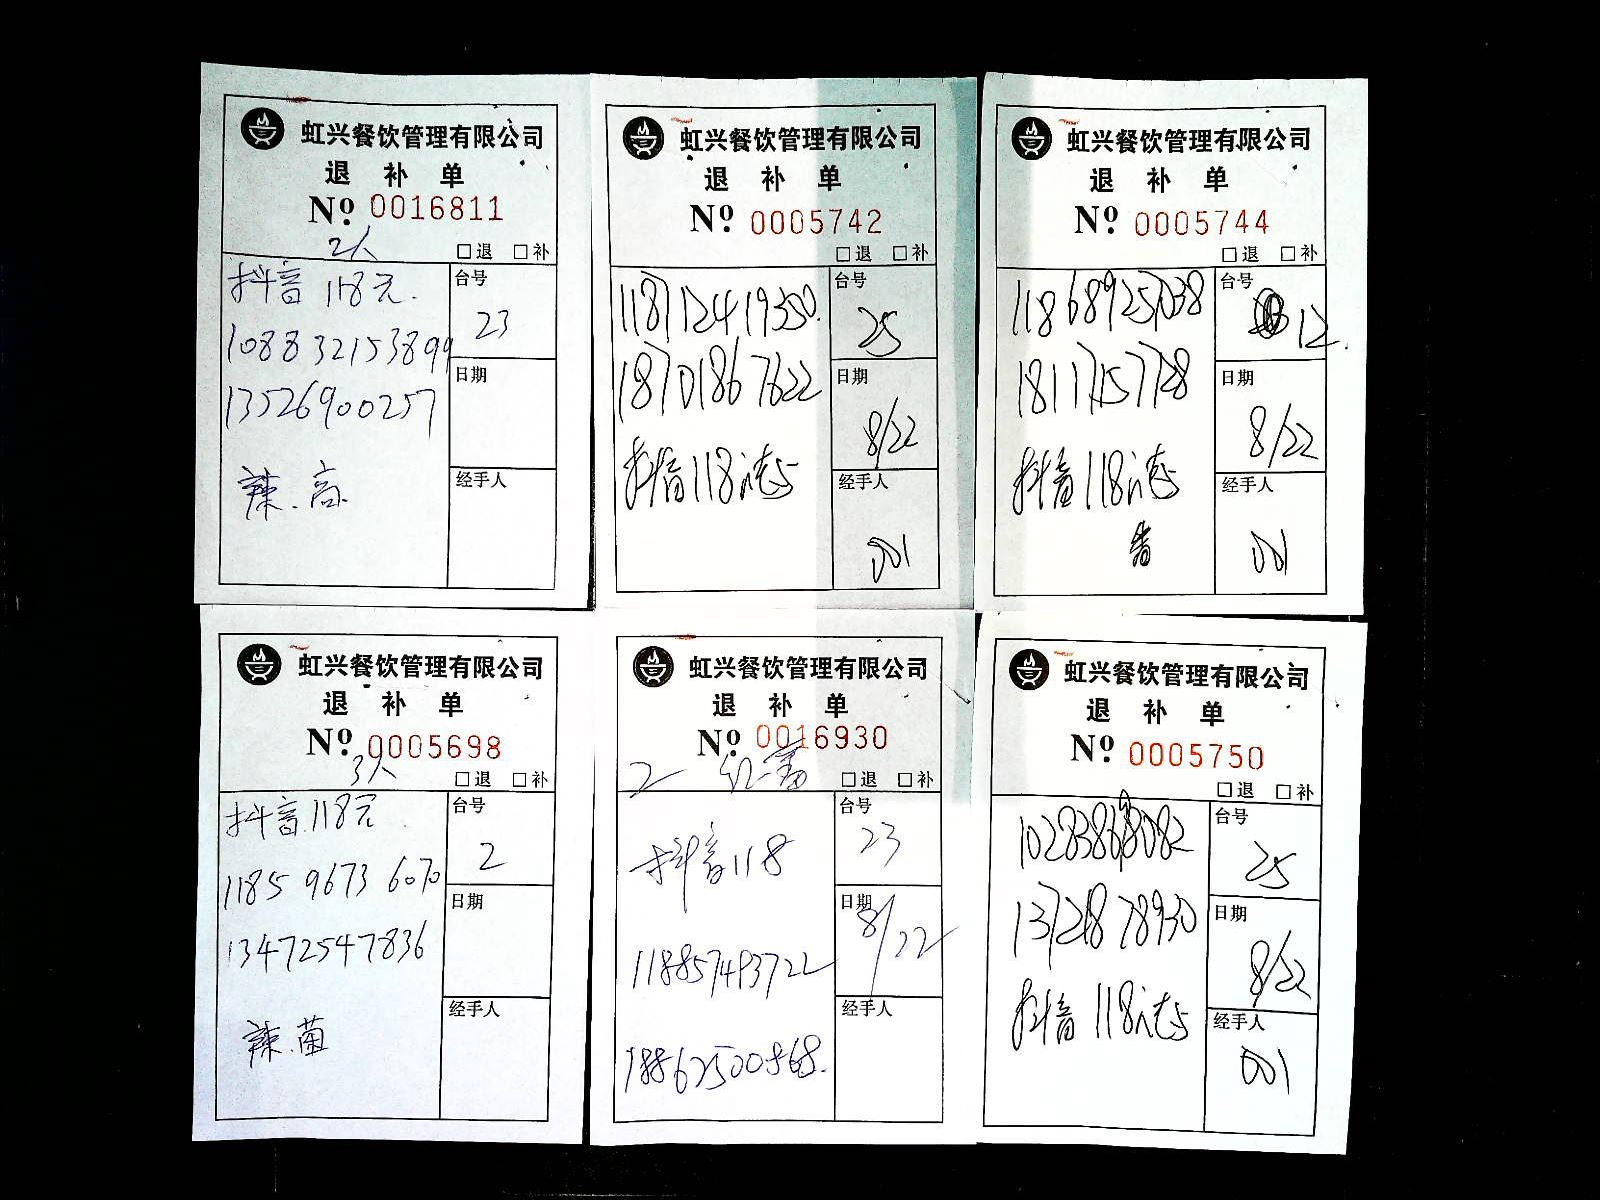 虹兴餐饮管理有限公司
退 补 单
Nº. 0016811
2人
□退 □补
抖音 118元.
108832153899
13526900257
辣.高.
台号
23
日期
经手人
虹兴餐饮管理有限公司
退 补 单
Nº. 0005742
□退 □补
118712419350.
18701867622
抖音118
台号
25
日期
8/22
经手人
001
虹兴餐饮管理有限公司
退 补 单
Nº. 0005744
□退 □补
18117157728
抖音118
台号
12
日期
8/22
经手人
001
虹兴餐饮管理有限公司
退 补 单
Nº. 0005698
3人
□退 □补
抖音.118元
1185 9673 6070
13472547836
辣.菌
台号
2
日期
经手人
虹兴餐饮管理有限公司
退 补 单
Nº. 0016930
2
□退 □补
抖音118
118857493722
18862500868.
台号
23
日期
8/22
经手人
虹兴餐饮管理有限公司
退 补 单
Nº. 0005750
□退 □补
13721878930
抖音118
台号
25
日期
8/22
经手人
001